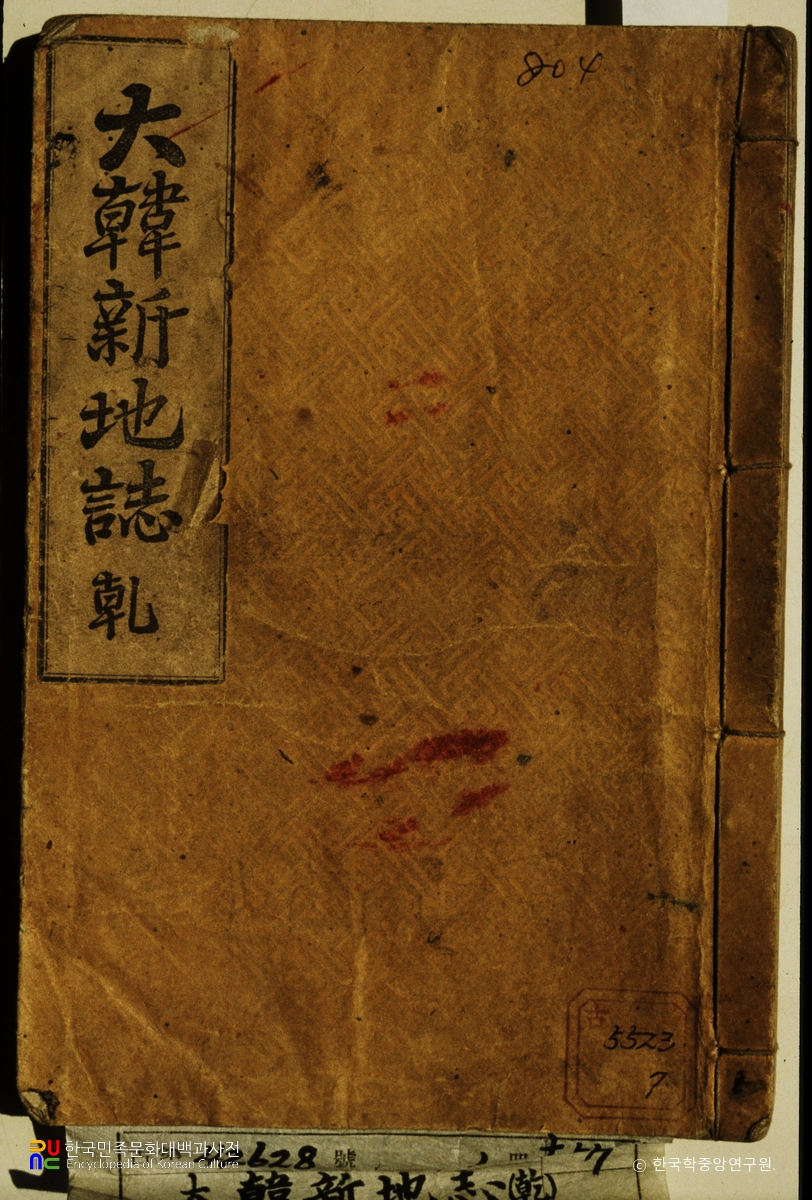 大韓新地誌 乾
804
古
5523
7
628 號
大韓新地志(乾)
한국민족문화대백과사전
Encyclopedia of Korean Culture
ⓒ 한국학중앙연구원.